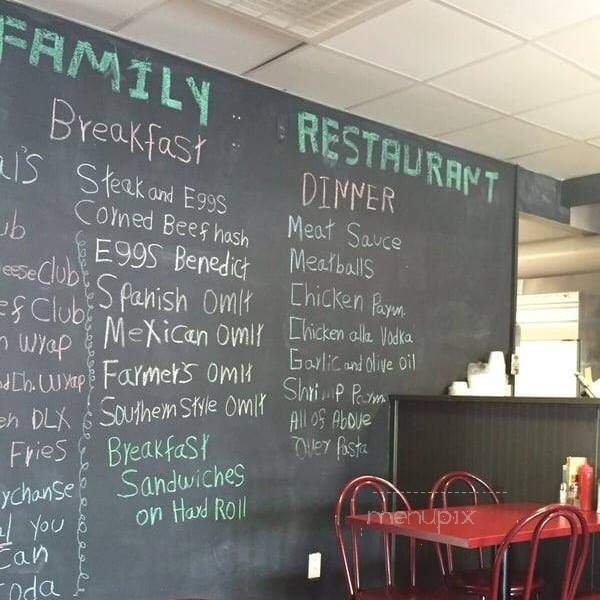 FAMILY RESTAURANT
Club
ef Club
n Wrap
en DLX
Fries
You
Can
Breakfast
Steak and Eggs
Corned Beef hash
Eggs Benedict
Spanish Omlt
Mexican Omlt
Farmers Omlt
Southern Style Omlt
Breakfast
Sandwiches
on Hard Roll
DINNER
Meat Sauce
Meatballs
Chicken Parm.
Chicken alla Vodka
Garlic and Olive Oil
Shrimp Parm.
All of Above
Over Pasta
menupix